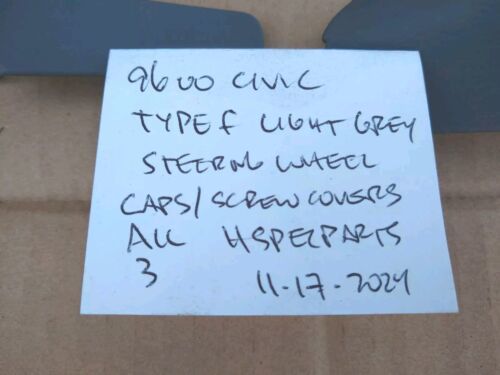 9600 CIVIC
TYPE f LIGHT GREY
STEERING WHEEL
CAPS/SCREW COVERS
ALL HSPECPARTS
3 11-17-2024